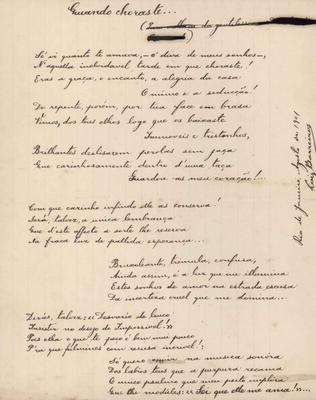 Quando choraste...
Só vi quanto te amava, – ó diva de meus sonhos –,
N'aquella inolvidavel tarde em que choraste!
Eras a graça, o encanto, a alegria da casa
O mimo e a seducção!
De repente, porém, por tua face em brasa
Vimos, dos teus olhos logo que os baixaste
Immoveis e tristonhos,
Brilhantes deslisarem perolas sem jaça
Que carinhosamente dentro d'uma taça
Guardou-as meu coração!...
Com que carinho infindo elle as conserva!
Será, talvez, a unica lembrança
Que d'este affecto a sorte lhe reserva
Na fraca luz de pallida esperança...
Bruxoleante, tremula, confusa,
Ainda assim, é a luz que me illumina
Estes sonhos de amor na estrada escusa
Da incerteza cruel que me domina...
Dirás, talvez: "Desvario de louco
Insistir no desejo do Impossivel!"
Pois olha o que te peço é bem pouco
P'ra que fulmines com recusa incrivel!
Só quero na musica sonora
Dos labios teus que a purpura recama
O unico psalmo que meu peito implora
Que lhe modules: "Sei que elle me ama!"...
Rio de Janeiro, Agosto de
Luiz